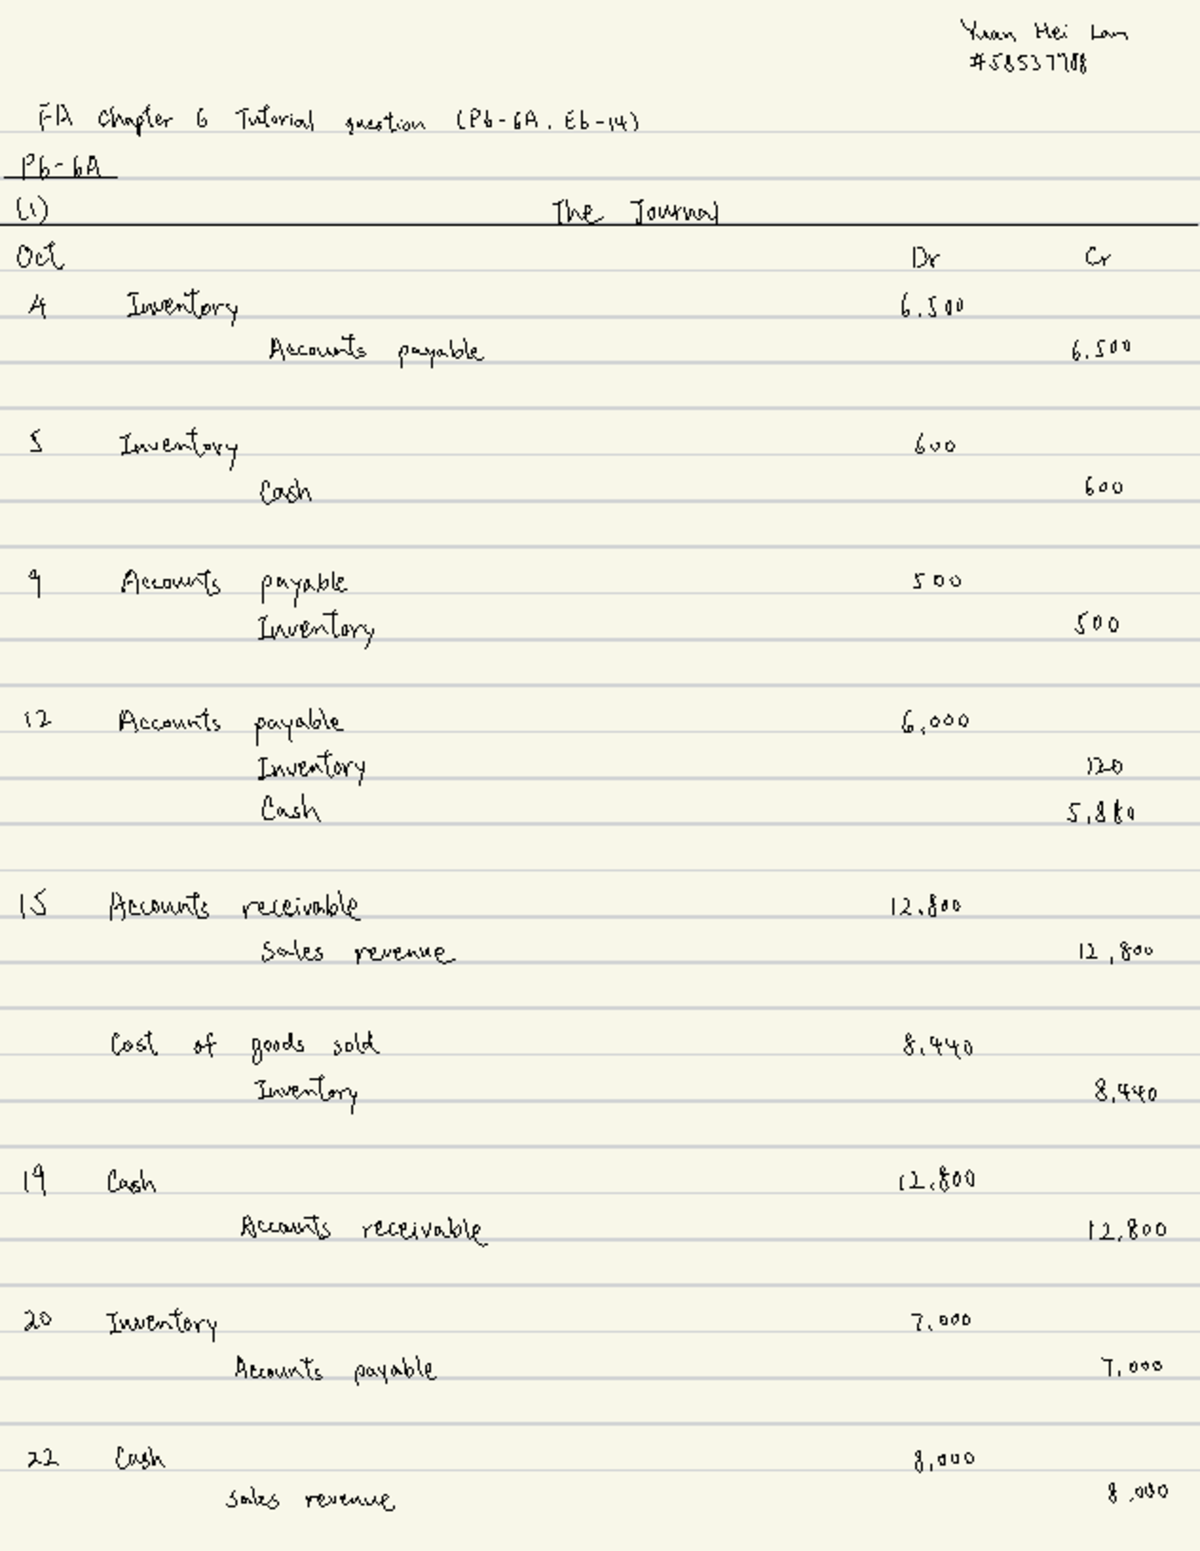 Yuan Hei Lam
FA Chapter 6 Tutorial question (P6-6A, E6-14)
P6-6A
(1) The Journal
Oct Dr Cr
4 Inventory 6,500
Accounts payable 6,500
5 Inventory 600
Cash 600
9 Accounts payable 500
Inventory 500
12 Accounts payable 6,000
Inventory 120
Cash 5,880
15 Accounts receivable 12,800
Sales revenue 12,800
Cost of goods sold 8,440
Inventory 8,440
19 Cash 12,800
Accounts receivable 12,800
20 Inventory 7,000
Accounts payable 7,000
22 Cash 8,000
Sales revenue 8,000